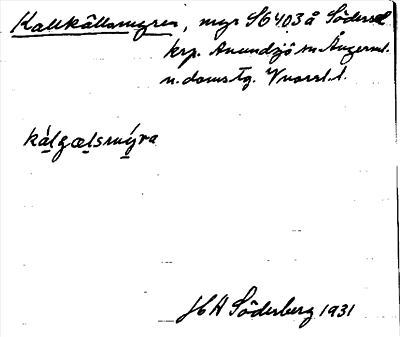 Kallkällsmyren, myr S6403å Södersel
krp. Anundsjö sn Ångerml.
n. doms tg. Vnorrl. l.
kàlgælsmýra
JHA Söderberg 1931